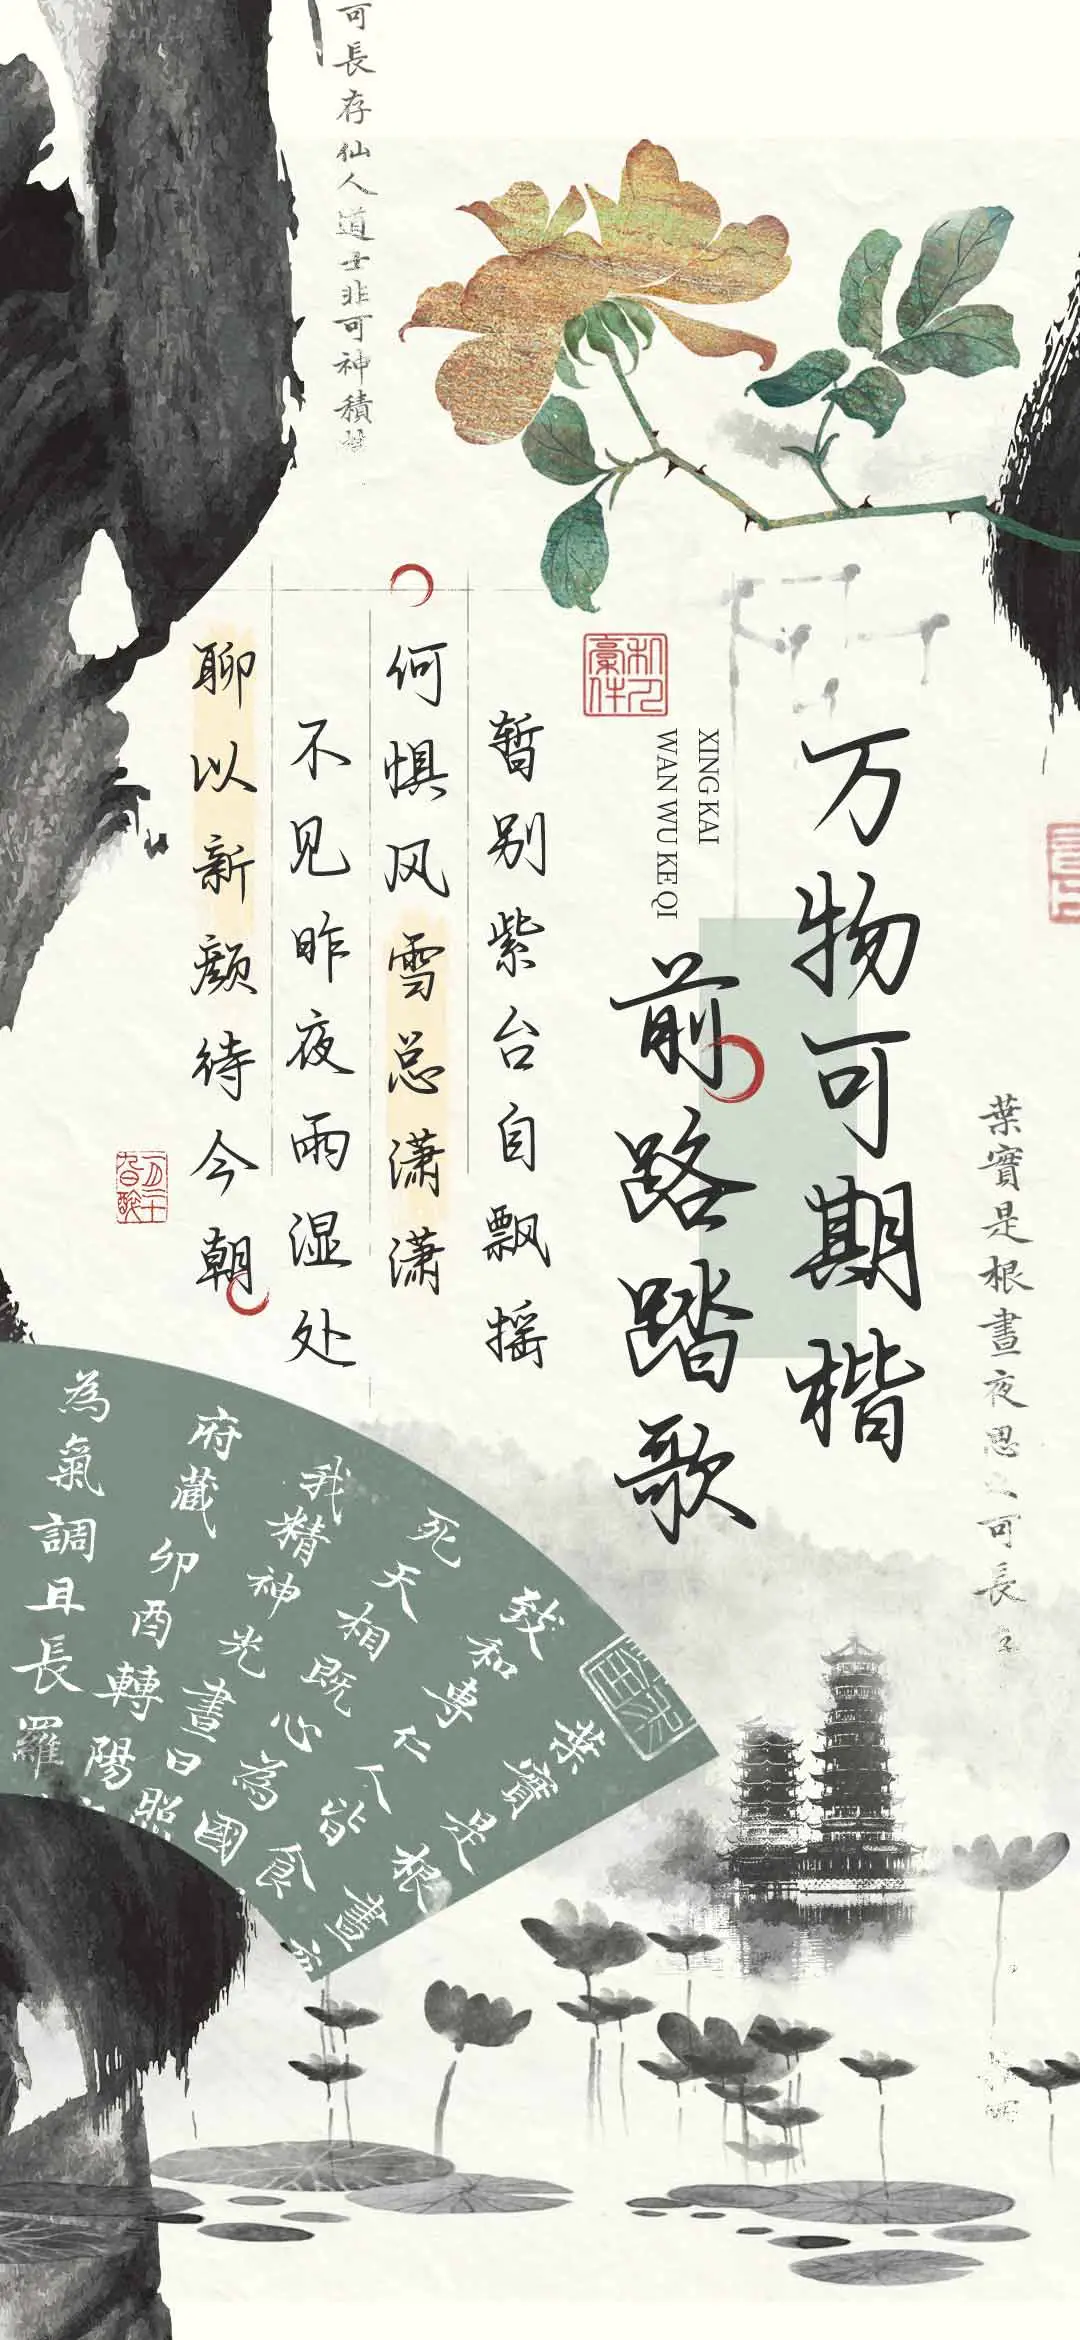 可長存仙人道士非可神積
万物可期楷
前路踏歌
XING KAI
WAN WU KE QI
暂别紫台自飘摇
何惧风雪总潇潇
不见昨夜雨湿处
聊以新颜待今朝
葉實是根晝夜思之可長
葉實是根晝
致和專仁人皆食
死天相既心為國
我精神光晝日照
府藏卯酉轉陽
為氣調且長羅